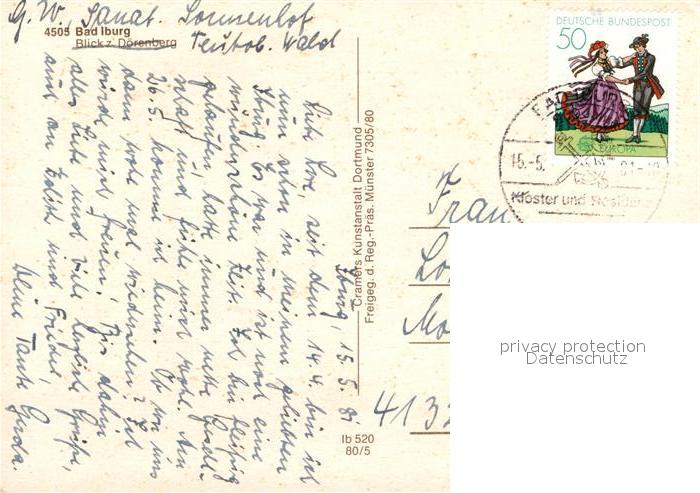 G. W. Sanat. Sonnenhof
4505 Bad Iburg
Blick z. Dörenberg
Teutob. Wald
Iburg, 15. 5. 81
Liebe Lore, seit dem 14.4. bin ich
nun schon in meinem geliebten
Iburg. Es war und ist noch eine
wunderschöne Zeit. Ich bin fleißig
gelaufen, hatte immer nette Gesell-
schaft und fühle mich wohl. Am
26.5. kommt ich heim. Ob wir uns
dann wohl mal wiedersehen? Ich
würde mich freuen. Bis dahin
alles Gute und viele herzliche Grüße,
auch an Edith und Frieder,
Deine Tante Gerda
Cramers Kunstanstalt Dortmund
Freigeg. d. Reg.-Präs. Münster 7305/80
Ib 520
80/5
DEUTSCHE BUNDESPOST
50
EUROPA
15.-5.
Kloster und Residenz
Frau
Lo
Mo
4132
privacy protection
Datenschutz